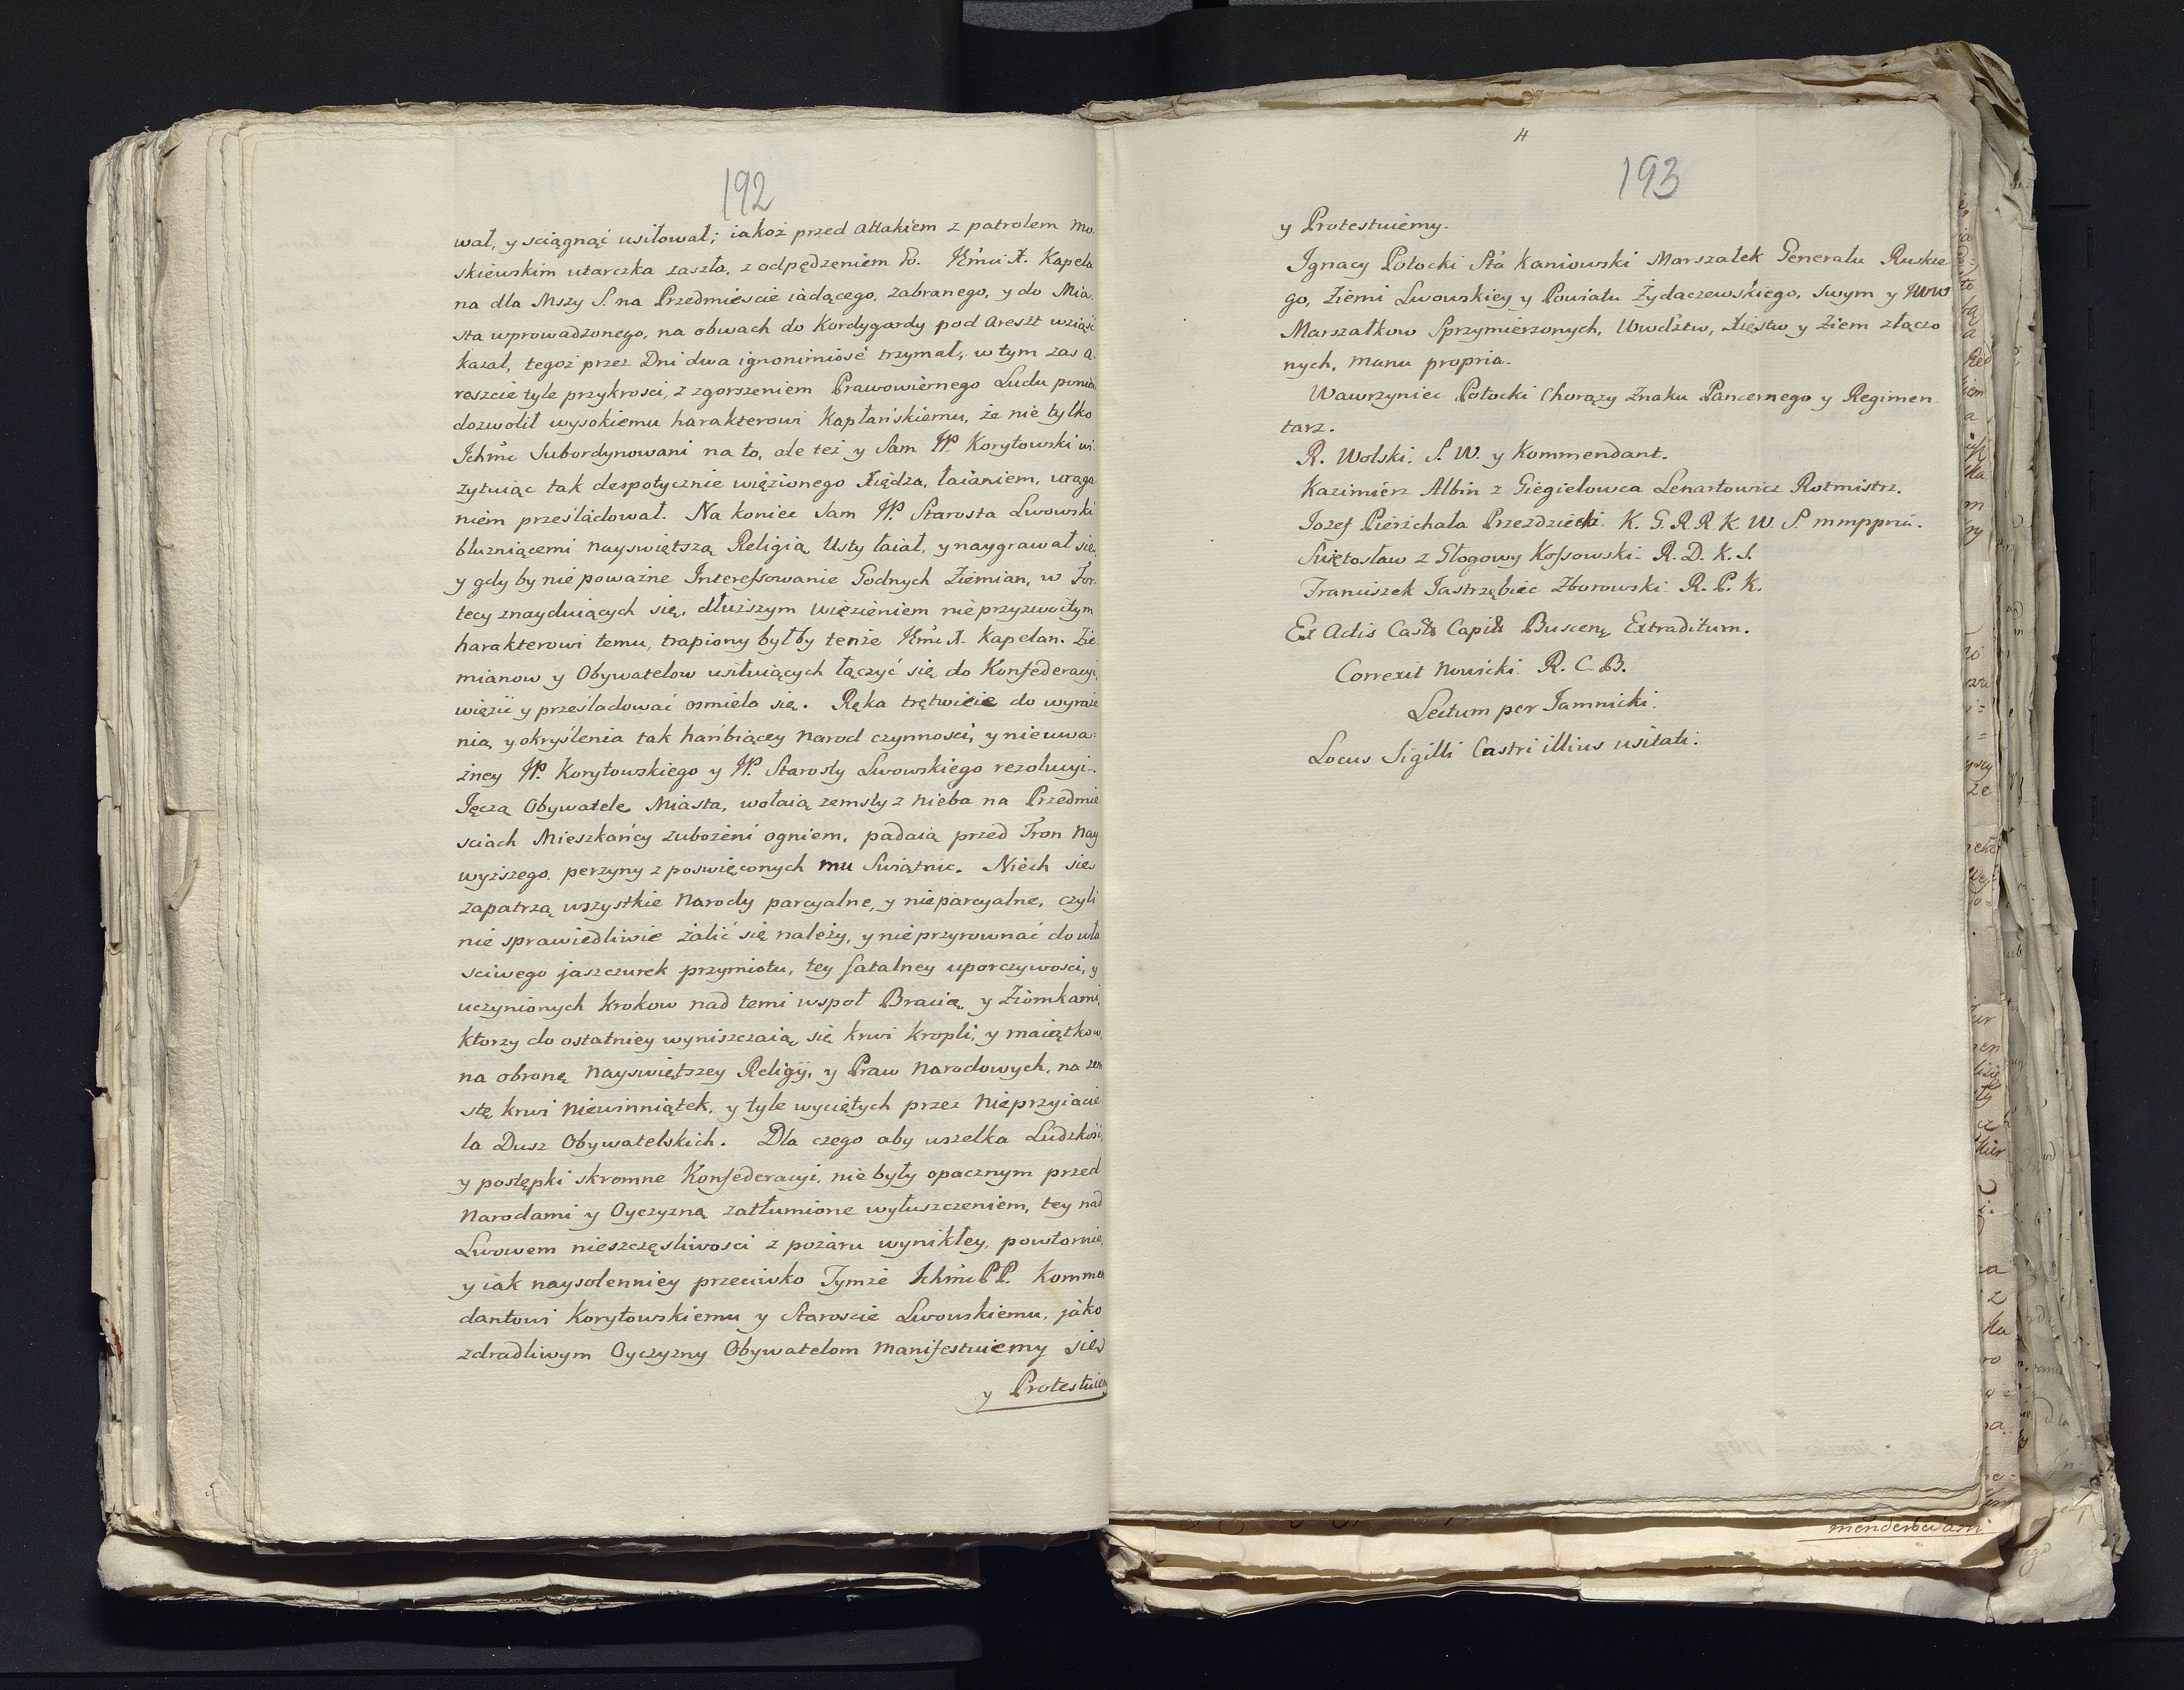 192
wał, y sciągnąć usiłował; iakoż przed Attakiem z patrolem Mo-
skiewskim utarczka zaszła, z odpędzeniem Go. JKmći X. Kapela
na dla Mszy S. na Przedmieście iadącego, zabranego, y do Mia-
sta wprowadzonego, na obwach do Kordygardy pod Areszt wziąść
kazał, tegoż przez Dni dwa ignonimiosè trzymał, w tym zas A-
reszcie tyle przykrosci, z zgorszeniem Prawowiernego Ludu
dozwolił wysokiemu harakterowi Kapłańskiemu, że nie tylko
Ichmć Subordynowani na to, ale też y Sam JP. Korytowski wi-
zytuiąc tak despotycznie więzionego Xiędza, łaianiem, uraga
niem prześladował. Na koniec Sam JP. Starosta Lwowski
bluzniącemi Nayswiętszą Religią Usty łaiał, y naygrawał się,
y gdy by nie poważne Interessowanie Godnych Ziemian, w For-
tecy znayduiących się, dłuższym Więzieniem nieprzyzwoitym
harakterowi temu, trapiony byłby tenże JKmć X. Kapelan. Zie
mianow y Obywatelow usiłuiących łączyć się do Konfederacyi,
więzić y prześladować osmiela się. Ręka trętwieie do wyraże
nia, y okryślenia tak hańbiącey Narod czynnosci, y nieuwa-
żney JP. Korytowskiego y JP. Starosty Lwowskiego rezolucyi.
Jęczą Obywatele Miasta, wołaią zemsty z Nieba na Przedmie
sciach Mieszkańcy zubożeni ogniem, padaią przed Tron Nay
wyższego, perzyny z poswięconych mu Swiątnic. Niech się
zapatrzą wszystkie Narody parcyalne, y nieparcyalne, czyli
nie sprawiedliwie żalić się należy, y nie przyrownać do wła
sciwego jaszczurek przymiotu, tey fatalney uporczywosci, y
uczynionych krokow nad temi wspoł Bracią, y Ziomkami,
ktorzy do ostatniey wyniszczaią się krwi kropli, y maiątkow,
na obronę Nayswiętszey Religij, y Praw Narodowych, na zem
stę krwi Niewinniątek, y tyle wyciętych przez Nieprzyiacie
la Dusz Obywatelskich. Dla czego aby wszelka Ludzkość,
y postępki skromne Konfederacyi, nie były opacznym przed
Narodami y Oyczyzną zatłumione wytuszczeniem, tey nad
Lwowem nieszczęsliwosci z pożaru wynikłey, powtornie,
y iak naysolenniey przeciwko Tymże Ichmć PP. Kommen
dantowi Korytowskiemu y Staroscie Lwowskiemu, jako
zdradliwym Oyczyzny Obywatelom Manifestuiemy się
y Protestuiem
4
193
y Protestuiemy.
Ignacy Potocki Sta Kaniowski Marszałek Generału Ruskie
go, Ziemi Lwowskiey y Powiatu Żydaczewskiego, swym y JWW
Marszałkow Sprzymierzonych, Wwdztw, Xięstw y Ziem złączo
nych, manu propria.
Wawrzyniec Potocki Chorąży Znaku Pancernego y Regimen
tarz.
R. Wolski. S. W. y Kommendant.
Kazimierz Albin z Giegielowca Lenartowicz Rotmistrz.
Jozef Pierzchała Przezdziecki. K. G. R. R. K. W. S. mmppria.
Swiętosław z Głogowy Kossowski. R. D. K. S.
Franciszek Jastrzębiec Zborowski. R. P. K.
Ex Actis Castr Capitł Buscenę Extraditum.
Correxit Nowicki. R. C. B.
Lectum per Jamnicki.
Locus Sigilli Castri illius usitati.
menderowani